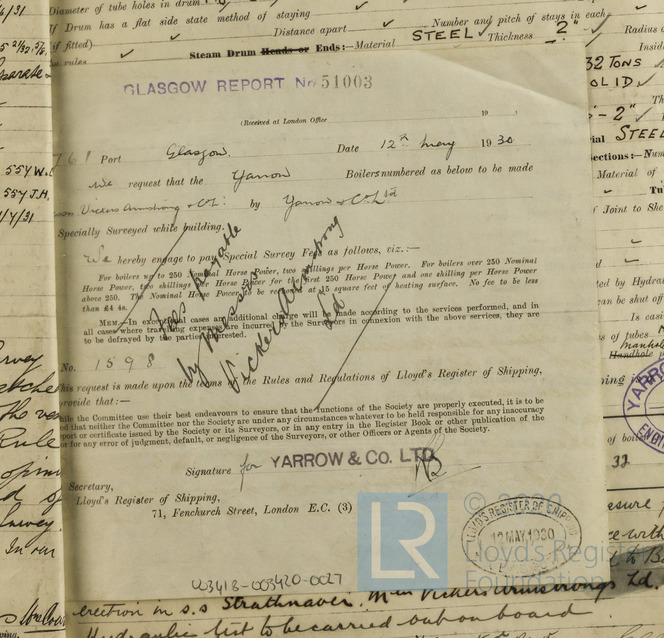 Diameter of tube holes in drum
If Drum has a flat side state method of staying
Distance apart ✓ Number and pitch of stays in each
if fitted) ✓ STEEL ✓ Thickness 2" ✓ Radius
Steam Drum Heads or Ends:—Material
6/31
5 2/32
Separate
557 W.
557 J.H.
/7/31
32 TONS
OLID
- 2"
STEEL
ections:—Num
Material of
of Joint to She
GLASGOW REPORT No 51003
(Received at London Office 19
Port Glasgow. Date 12th May 1930
We request that the Yarrow Boilers numbered as below to be made
Vickers Armstrong & Co. Ld. by Yarrow & Co. Ltd
Specially Surveyed while building.
We hereby engage to pay Special Survey Fees as follows, viz.:—
For boilers up to 250 Nominal Horse Power, two shillings per Horse Power. For boilers over 250 Nominal
Horse Power, two shillings per Horse Power for the first 250 Horse Power and one shilling per Horse Power
above 250. The Nominal Horse Power to be reckoned at 15 square feet of heating surface. No fee to be less
than £4 4s.
MEM.—In exceptional cases an additional charge will be made according to the services performed, and in
all cases where travelling expenses are incurred by the Surveyors in connexion with the above services, they are
to be defrayed by the parties interested.
Fees payable
by Messrs
Vickers Armstrong
Ltd
No. 1598
his request is made upon the terms of the Rules and Regulations of Lloyd's Register of Shipping,
provide that:—
hile the Committee use their best endeavours to ensure that the functions of the Society are properly executed, it is to be
od that neither the Committee nor the Society are under any circumstances whatever to be held responsible for any inaccuracy
eport or certificate issued by the Society or its Surveyors, or in any entry in the Register Book or other publication of the
or for any error of judgment, default, or negligence of the Surveyors, or other Officers or Agents of the Society.
Signature for YARROW & CO. LTD.
Secretary,
Lloyd's Register of Shipping,
71, Fenchurch Street, London E.C. (3)
LLOYD'S REGISTER OF SHIPPING
12 MAY 1930
LR
© 2020
Lloyd's Register
Foundation
003418-003420-0027
by Hydrau
can be shut off
Is easi
s of tubes
Manhole
Handhole
YARROW
ENGINE
of boile
32
essure
ce with
to B
urvey
etche
The ve
Rule
opin
d of
Survey
In our
erection in s.s Strathnaver. Messrs Vickers Armstrongs Ld.
Hydraulic test to be carried out on board